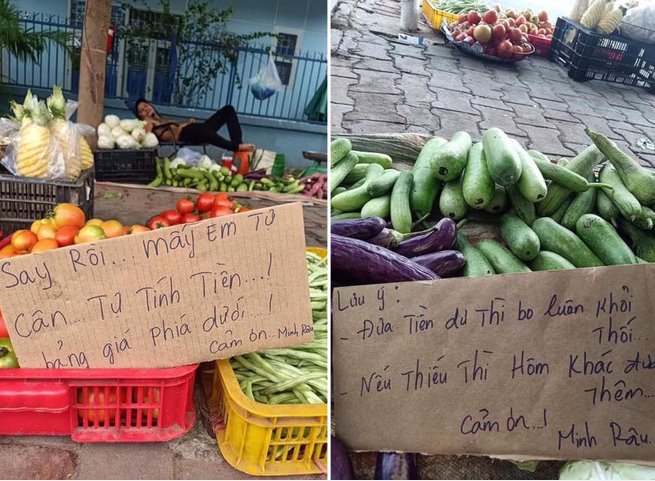 Say Rồi... mấy Em Tự
Cân... Tự Tính Tiền...!
bảng giá Phía dưới...!
Cảm ơn... Minh Râu
Lưu ý:
- Đưa Tiền dư Thì bo luôn Khỏi
Thối...
- Nếu Thiếu Thì Hôm Khác đưa
Thêm...
Cảm ơn...!
Minh Râu.